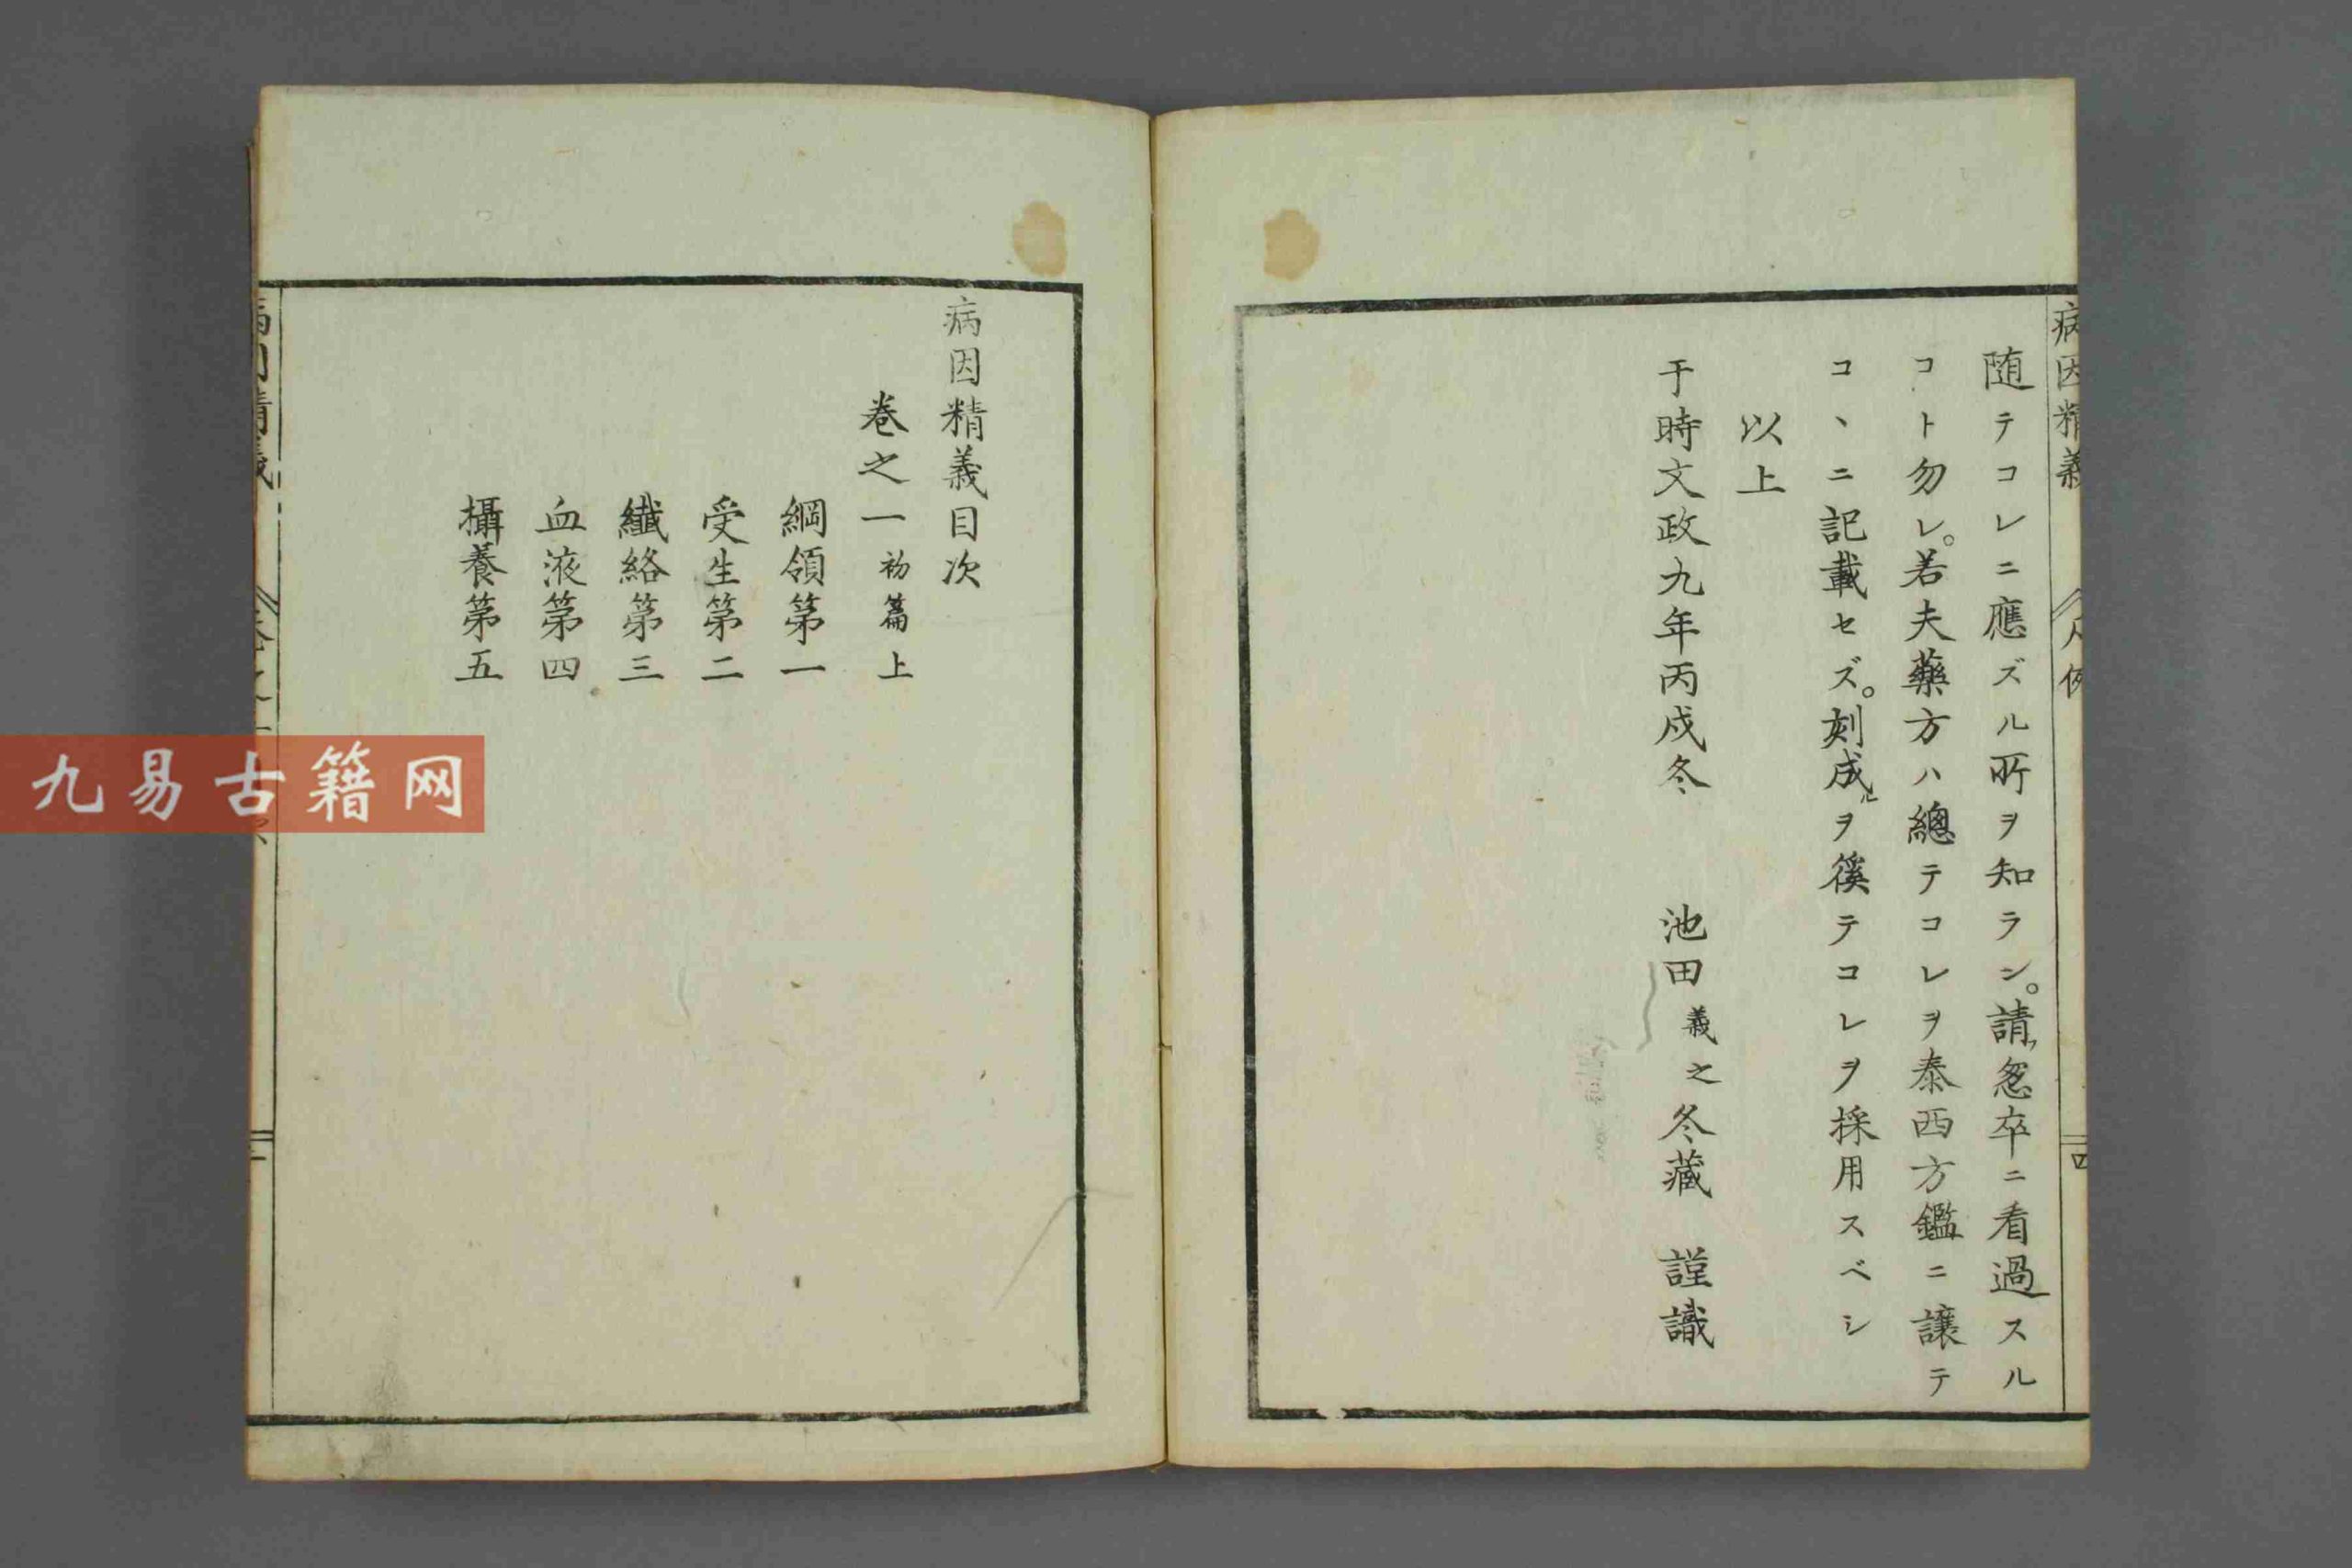 病因精義
凡例
四
随テコレニ應ズル所ヲ知ラン。請フ怱卒ニ看過スル
コト勿レ。若夫藥方ハ總テコレヲ泰西方鑑ニ譲テ
コヽニ記載セズ。刻成ルヲ徯テコレヲ採用スベシ
以上
于時文政九年丙戌冬 池田義之冬藏 謹識
病因精義目次
卷之一 初篇上
綱領第一
受生第二
纖絡第三
血液第四
攝養第五
九易古籍网